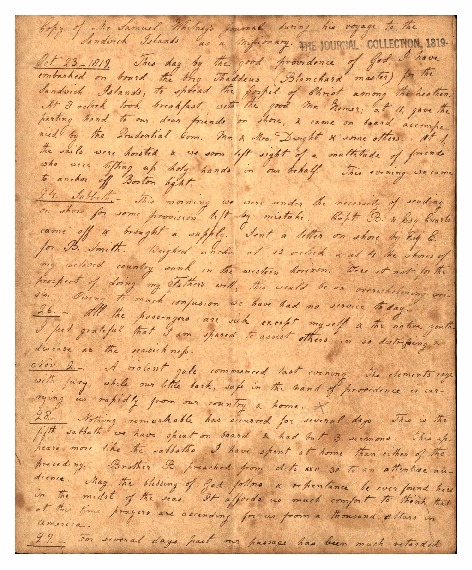 Copy of Mr Samuel Whitney's Journal during his voyage to the
Sandwich Islands as a Missionary.
THE JOURNAL COLLECTION, 1819-
Oct 23-1819. This day by the good providence of God I have
embarked on board the brig Thaddeus (Blanchard master) for the
Sandwich Islands, to spread the gospel of Christ among the heathen.
At 8 o'clock took breakfast, with the good Mr at 11, gave the
parting hand to our dear friends on shore, & came on board accompa-
nied by the Prudential Com. Mr & Mrs. Dwight & some others. At
the sails were hoisted & we soon left sight of a multitude of friends
who were lifting up holy hands in our behalf. This evening we came
to anchor off Boston light.
24. Sabbath- This morning we were under the necessity of sending
on shore for some provision left by mistake. Capt B. &
came off & brought a supply. Sent a letter on shore by
for B. Smith. Weighed anchor at 12 oclock & at 4 the shores of
my beloved country sunk in the western horizon. Were it not for the
prospect of doing my Fathers will, this would be an overwhelming
Owing to much confusion we have had no service today.
26- All the passengers are sick except myself & the native youth
I feel grateful that I am spared to assist others in so distressing a
disease as the seasickness.
Nov A violent gale commenced last evening. The elements rage
with fury while our little bark, safe in the hand of providence is car-
rying us rapidly from our country & home.
28- Nothing remarkable has occurred for several days. This is the
fifth sabbath we have spent on board & had but 3 sermons. This ap-
pears more like the sabbaths I have spent at home than either of the
preceding. Brother B. preached from to an attentive au-
dience. May the blessing of God follow & repentance be ever found here
in the midst of the seas. It affords us much comfort to think that
at this time prayers are ascending for us from a thousand altars in
America.
29- For several days past our passage has been much retarded